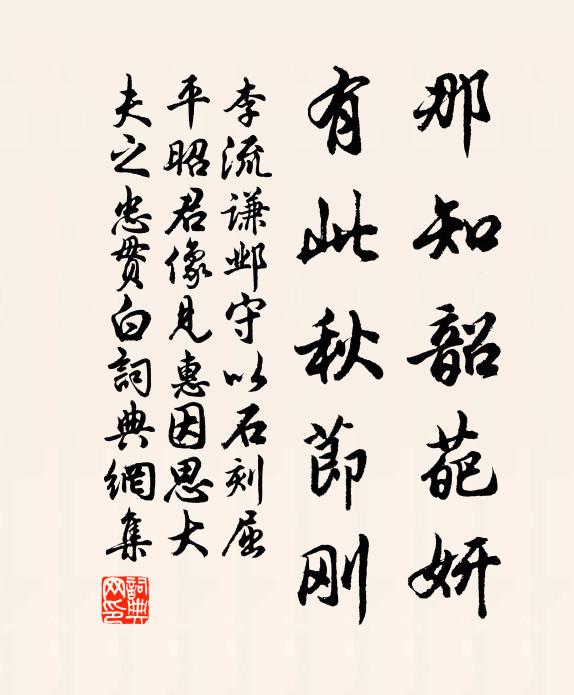 那知韶葩妍
有此秋節刚
李流謙邺守以石刻屈
平昭君像見惠因思大
夫之忠貫白詞典網集
詞典
网印